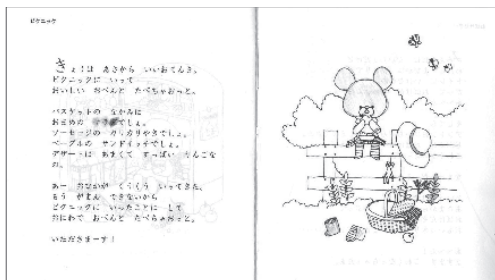 ピクニック
きょうは あさから いいおてんき。
ピクニックに いって
おいしい おべんと たべちゃおっと。
バスケットの なかみは
おまめの でしょ。
ソーセージの かりかりやきでしょ。
ベーグルの サンドイッチでしょ。
デザートは あまくて すっぱい りんごな
の。
あー おなかが くうくう いってきた。
もう がまん できないから
ピクニックに いったことに して
おにわで おべんと たべちゃおっと。
いただきまーす!